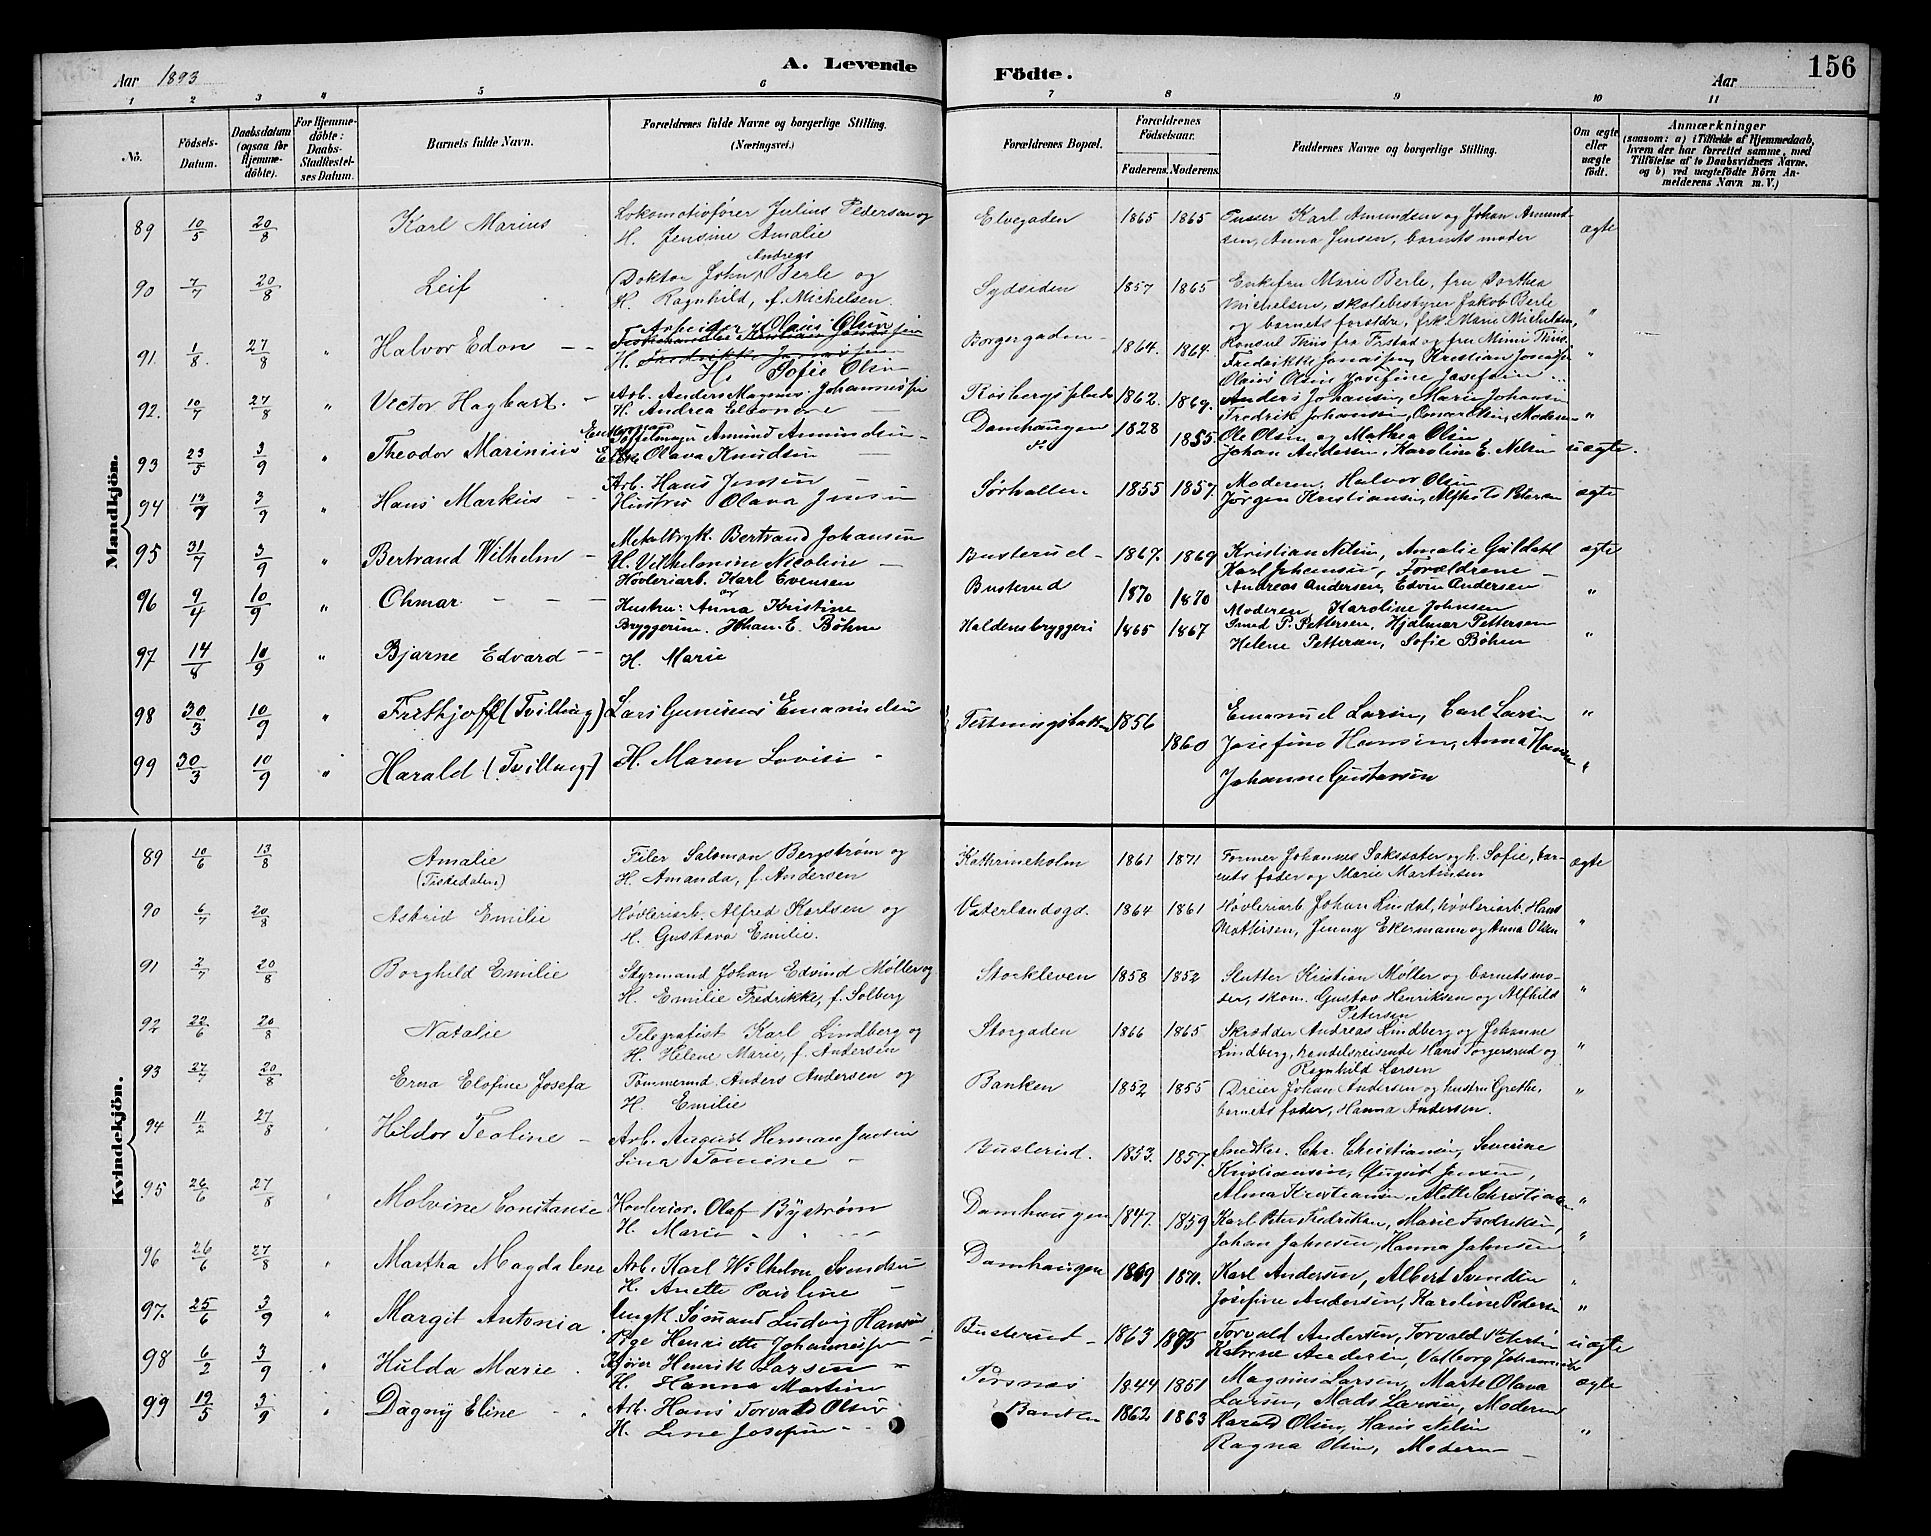 Aar 1893
A. Levende
Födte.
Aar
156
1 2 3 4 5 6 7 8 9 10 11
No.
Födsels-Datum.
Daabsdatum (ogsaa for Hjemmedöbte).
For Hjemmedöbte: Daabs-Stadfæstelses Datum.
Barnets fulde Navn.
Forældrenes fulde Navne og borgerlige Stilling. (Næringsvei.)
Forældrenes Bopæl.
Forældrenes Födselsaar.
Faderens. Moderens.
Faddernes Navne og borgerlige Stilling.
Om ægte eller uægte födt.
Anmærkninger
(saasom: a) i Tilfælde af Hjemmedaab, hvem der har forrettet samme, med Tilföielse af to Daabsvidners Navne, og b) ved uægtefödte Börn Anmelderens Navn m. V.)
Mandkjön.
89 10/5 20/8 Karl Marius Lokomotivfører Julius Pedersen og Elvegaden 1865 1865 Karl Amundsen og Johan Amund- ægte
H. Jensine Amalie sen, Anna Jensen, barnets moder
90 7/7 20/8 Leif Doktor Johan Andreas Berle og Sydsiden 1857 1865 Enkefru Marie Berle, fru Dorthea "
H. Ragnhild, f. Michelsen. Michelsen, skolebestyrer Jakob Berle
og barnets forældre, frk. Marie Michelsen,
Konsul Thiis fra Frstad og fru Mimi Thiis.
91. 1/8. 27/8 " Halvor Edon - - Arbeider Olaus Olsen Borgergaden - 1864. 1864. Fredrikke Jonassen, Kristian Jonassen "
H. Sofie Olsen Olaus Olsen Josefine Josefsen
92. 10/7 27/8 " Vector Hagbart. - Arb. Anders Magnus Johannessen 1862. 1869. Anders Johansen, Marie Johansen "
H. Andrea Eleonore Fredrik Johansen, Moderen
93 23/5 3/9 " Theodor Marinius Enkemand Amund Amundsen - Damhaugen 1828 1855. Ole Olsen og Mathea Olsen uægte.
Enke Olava Knudsen Johan Andersen, Karoline E. Nelsen
94 3/9 " Hans Markus - - Arb. Hans Jensen Sørhallen 1855 1857. Moderen, Halvor Olsen ægte
Hustru Olava Jensen Jørgen Kristiansen,
95 31/7 3/9 " Bertrand Wilhelm - Bertrand Johansen Busterud - 1867. 1869 Kristian Nelsen, Amalie Guldahl ægte
H. Vilhelmine Nicoline - Karl Johansen, Forældrene -
96 9/4 10/9 " Ohmar - - - Høvleriarb. Karl Evensen Busterud 1870 1870 Andreas Andersen, Edvin Andersen "
og Hustru: Anna Kristine Moderen Karoline Johnsen
97 14/8 10/9 " Bjarne Edvard - - Johan. E. Bøhne Haldensbryggeri 1865 1867 Smed P. Pettersen, Hjalmar Pettersen "
H. Marie Helene Pettersen, Sofie Bøhen
98 30/3 10/9 " Frithjoff (Tvilling) Lars Emanuelsen 1856 Emanuel Larsen, Carl Larsen "
99 30/3 10/9 " Harald (Tvilling) H. Maren Lovise - 1860 Josefine Hansen, Anna Hansen "
Johanne Gustavsen
Kvindekjön.
89 10/6 13/8 Amalie Filer Salomon Bergstrøm og Kathrineholm 1861 1871 Former Johannes Sakssater og h. Sofie, bar- ægte
(Tistedalen) H. Amanda, f. Andersen nets fader og Marie Martinsen
90 6/7 20/8 Astrid Emilie Høvleriarb. Alfred Karlsen og Vaterlandsgd. 1864 1861 Høvleriarb Johan Lindal, høvleriarb. Hans "
H. Gustava Emilie. Mathisen, Jenny Ekermann og Anna Olsen
91 2/7 20/8 Borghild Emilie Styrmand Johan Edvind Møller og Stockleven 1858 1852 Slutter Kristian Møller og barnets mo- "
H. Emilie Fredrikke, f. Solberg der, skom. Gustav Henriksen og Alfhild
Petersen
92 22/6 20/8 Natalie Telegrafist Karl Lindberg og Storgaden 1866 1865 Skrædder Andreas Lindberg og Johanne "
H. Helene Marie, f. Andersen Lindberg, handelsreisende Hans Torgersrud og
Ragnhild Larsen
93 27/7 20/8 Erna Elofine Josefa Tømmermd. Anders Andersen og Banken 1852 1855 Dreier Johan Andersen og hustru Grethe, "
H. Emilie barnets fader, Hanna Andersen.
94 11/2 27/8 Hildor Teoline - Arb. August Herman Jensen Busterud. 1853. 1857. Snedker. Chr. Christiansen, Severine
Lina Tomine - Kristiansen, August Jensen,
Alma Kristiansen, Alette Christiansen "
95 26/6 27/8 Molvine Constanse Høvleriar. Olaf Bystrøm Damhaugen 1847. 1859 Karl Peter Fredriksen, Marie Fredriksen,
H. Marie Johan Jahnsen, Hanna Jahnsen "
96 26/6 27/8 Martha Magdalene Arb. Karl Wilhelm Svendsen Damhaugen 1869 1871. Karl Andersen, Albert Svendsen "
H. Anette Pauline - Josefine Andersen, Karoline Pedersen "
97. 25/6 3/9 " Margit Antonia Ungk. Sømand Ludvig Hansen Busterud - 1863 Torvald Andersen, Torvald uægte
Pige Henriette Johannessen - Andersen, Valborg
98 6/2 3/9 " Hulda Marie. Henrik Larsen 1844 1851 Magnus Larsen, Marte Olava ægte
H. Hanna Martine Larsen, Mads Larsen, Moderen
99 19/5 3/9 " Dagny Eline - Arb. Hans Torvald Olsen Banken 1862 1863 Harald Olsen, Hans Nilsen "
H. Line Josefine - Ragna Olsen, Moderen -